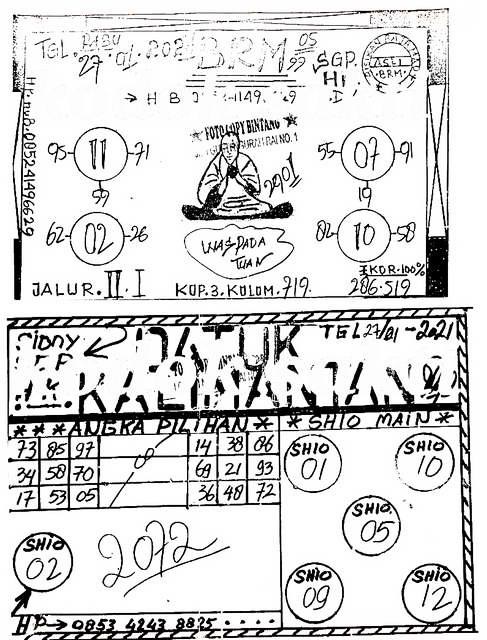 TGL. RABU
27 · 01 · 202
BRM
05
99
SGP.
HI
.I
ASLI
BRM
→ H B
1149.
FOTOCOPY BINTANG
NO. 1
95 - 11 - 71
59
62 - 02 - 26
55 - 07 - 91
19
82 - 10 - 58
2901
WASPADA
TUAN
JALUR. II. I
KOP. 3. KOLOM. 719.
KOR. 100%
286.519
SIDNY
DATUK
KALIMANTAN
TGL 27/01 - 2021
* * * ANGKA PILIHAN *
* SHIO MAIN *
73 85 97
14 38 86
34 58 70
69 21 93
17 53 05
36 48 72
SHIO
01
SHIO
10
SHIO
05
SHIO
09
SHIO
12
SHIO
02
2072
HP → 0853 4243 8825 . . . .